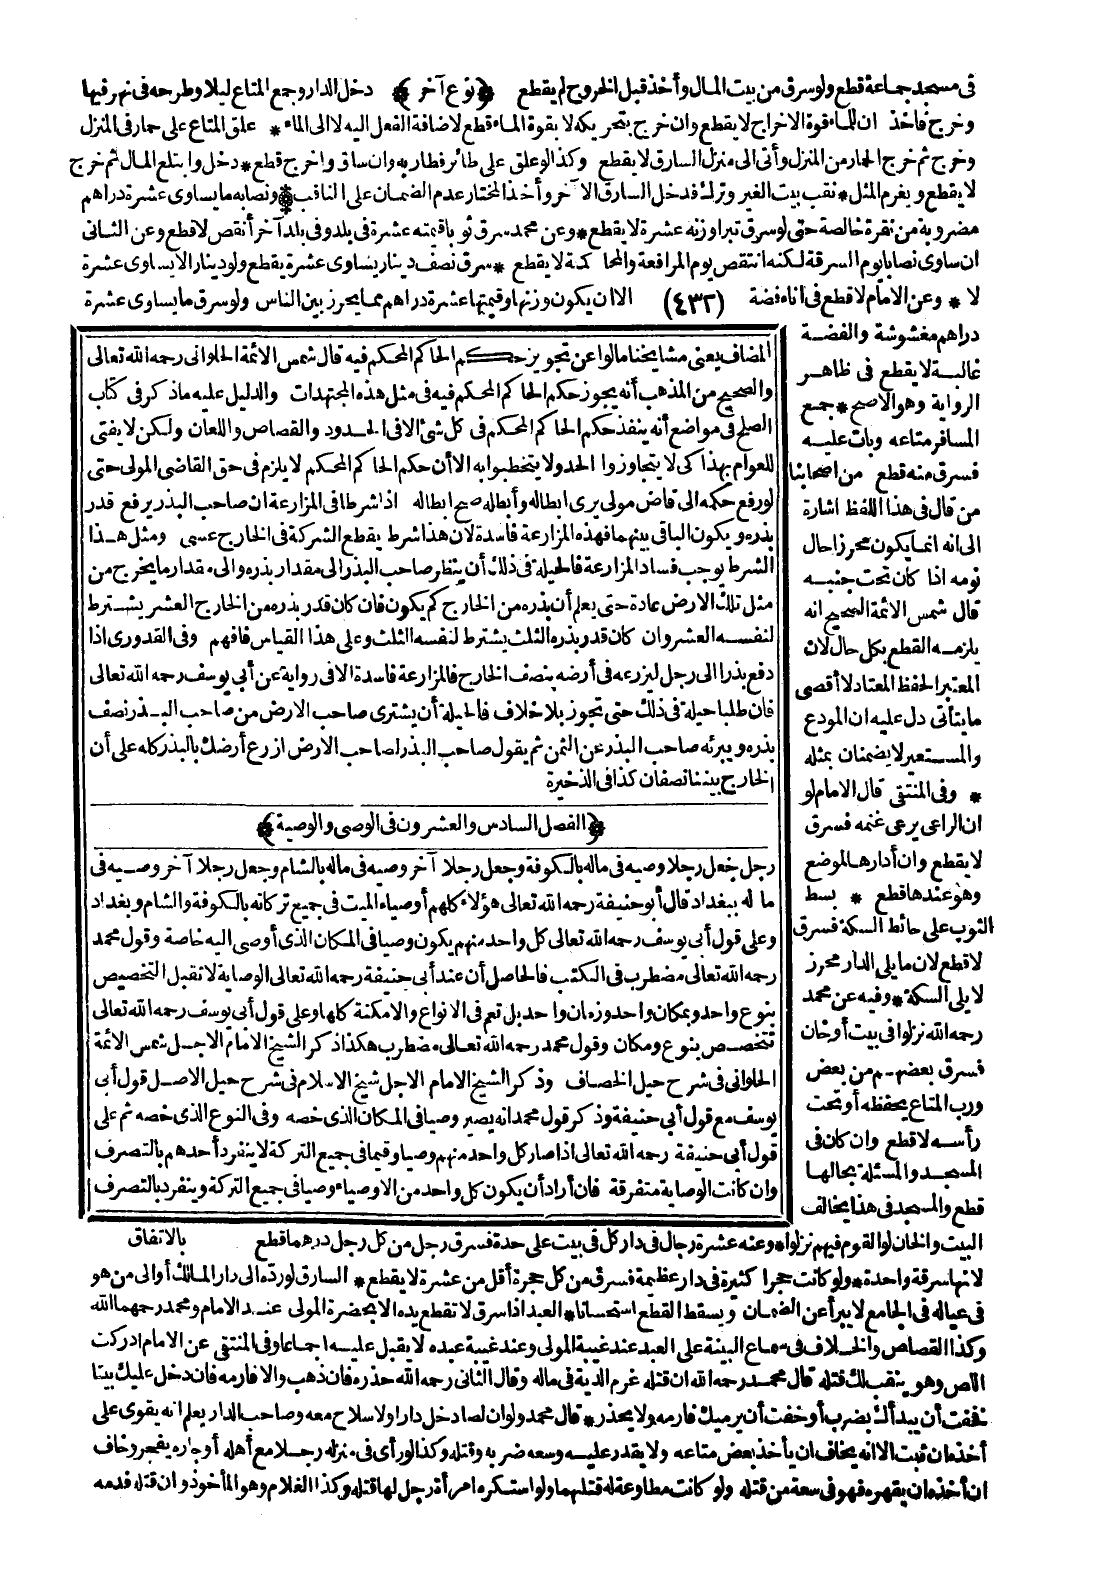 فى مسجد جماعة قطع ولو سرق من بيت المال وأخذ قبل الخروج لم يقطع ﴿نوع آخر﴾ دخل الدار وجمع المتاع ليلا وطرحه فى نهر فيها
وخرج فأخذ ان للماء قوة الاخراج لا يقطع وان خرج بتحريكه لا بقوة الماء قطع لاضافة الفعل اليه لا الى الماء * علق المتاع على حمار فى المنزل
وخرج ثم خرج الحمار من المنزل وأتى الى منزل السارق لا يقطع وكذا لو علق على طائر فطار به وان ساق واخرج قطع * دخل وابتلع المال ثم خرج
لا يقطع ويغرم المثل * نقب بيت الغير وترك فدخل السارق الآخر وأخذ المختار عدم الضمان على الناقب * ونصابه ما يساوى عشرة دراهم
مضروبة من نقرة خالصة حتى لو سرق تبرا وزنه عشرة لا يقطع * وعن محمد سرق ثوبا قيمته عشرة فى بلد وفى بلد آخر أنقص لا قطع وعن الثانى
ان ساوى نصابا يوم السرقة لكنه انتقص يوم المرافعة والمحاكمة لا يقطع * سرق نصف دينار يساوى عشرة يقطع ولو دينارا لا يساوى عشرة
لا * وعن الامام لا قطع فى اناء فضة (٤٣٢) الا ان يكون وزنها وقيمتها عشرة دراهم مما يحرز بين الناس ولو سرق ما يساوى عشرة
دراهم مغشوشة والفضة
غالبة لا يقطع فى ظاهر
الرواية وهو الاصح * جمع
المسافر متاعه وبات عليه
فسرق منه قطع من اصحابنا
من قال فى هذا اللفظ اشارة
الى انه انما يكون محرزا حال
نومه اذا كان تحت جنبه
قال شمس الائمة الصحيح انه
يلزمه القطع بكل حال لان
المعتبر الحفظ المعتاد لا أقصى
ما يتأتى دل عليه ان المودع
والمستعير لا يضمنان بمثله
* وفى المنتقى قال الامام لو
ان الراعى يرعى غنمه فسرق
لا يقطع وان أدارها لموضع
وهو عندها قطع * بسط
الثوب على حائط السكة فسرق
لا قطع لان ما يلى الدار محرز
لا يلى السكة * وفيه عن محمد
رحمه الله نزلوا فى بيت أو خان
فسرق بعضهم من بعض
ورب المتاع يحفظه أو تحت
رأسه لا قطع وان كان فى
المسجد والمسئلة بحالها
قطع والمسجد فى هذا يخالف
المضاف يعنى مشايخنا مالوا عن تجويز حكم الحاكم المحكم فيه قال شمس الائمة الحلوانى رحمه الله تعالى
والصحيح من المذهب أنه يجوز حكم الحاكم المحكم فيه فى مثل هذه المجتهدات والدليل عليه ما ذكر فى كتاب
الصلح فى مواضع أنه ينفذ حكم الحاكم المحكم فى كل شئ الا فى الحدود والقصاص واللعان ولكن لا يفتى
للعوام بهذا كى لا يتجاوزوا الحد ولا يتخطوا به الا أن حكم الحاكم المحكم لا يلزم فى حق القاضى المولى حتى
لو رفع حكمه الى قاض مولى يرى ابطاله وأبطله صح ابطاله اذا شرطا فى المزارعة ان صاحب البذر يرفع قدر
بذره ويكون الباقى بينهما فهذه المزارعة فاسدة لان هذا شرط يقطع الشركة فى الخارج عسى ومثل هذا
الشرط يوجب فساد المزارعة فالحيلة فى ذلك أن ينظر صاحب البذر الى مقدار بذره والى مقدار ما يخرج من
مثل تلك الارض عادة حتى يعلم أن بذره من الخارج كم يكون فان كان قدر بذره من الخارج العشر يشترط
لنفسه العشر وان كان قدر بذره الثلث يشترط لنفسه الثلث وعلى هذا القياس فافهم وفى القدورى اذا
دفع بذرا الى رجل ليزرعه فى أرضه بنصف الخارج فالمزارعة فاسدة الا فى رواية عن أبى يوسف رحمه الله تعالى
فان طلبا حيلة فى ذلك حتى تجوز بلا خلاف فالحيلة أن يشترى صاحب الارض من صاحب البذر نصف
بذره ويبرئه صاحب البذر عن الثمن ثم يقول صاحب البذر لصاحب الارض ازرع أرضك بالبذر كله على أن
الخارج بيننا نصفان كذا فى الذخيرة
﴿الفصل السادس والعشرون فى الوصى والوصية﴾
رجل جعل رجلا وصيه فى ماله بالكوفة وجعل رجلا آخر وصيه فى ماله بالشام وجعل رجلا آخر وصيه فى
ماله ببغداد قال أبو حنيفة رحمه الله تعالى هؤلاء كلهم أوصياء الميت فى جميع تركاته بالكوفة والشام وبغداد
وعلى قول أبى يوسف رحمه الله تعالى كل واحد منهم يكون وصيا فى المكان الذى أوصى اليه خاصة وقول محمد
رحمه الله تعالى مضطرب فى الكتب فالحاصل أن عند أبى حنيفة رحمه الله تعالى الوصاية لا تقبل التخصيص
بنوع واحد وبمكان واحد وزمان واحد بل تعم فى الانواع والامكنة كلها وعلى قول أبى يوسف رحمه الله تعالى
تتخصص بنوع ومكان وقول محمد رحمه الله تعالى مضطرب هكذا ذكر الشيخ الامام الاجل شمس الائمة
الحلوانى فى شرح حيل الخصاف وذكر الشيخ الامام الاجل شيخ الاسلام فى شرح حيل الاصل قول أبى
يوسف مع قول أبى حنيفة وذكر قول محمد انه يصير وصيا فى المكان الذى خصه وفى النوع الذى خصه ثم على
قول أبى حنيفة رحمه الله تعالى اذا صار كل واحد منهم وصيا وقيما فى جميع التركة لا ينفرد أحدهم بالتصرف
وان كانت الوصاية متفرقة فان أراد أن يكون كل واحد من الاوصياء وصيا فى جميع التركة وينفرد بالتصرف
البيت والخان لو القوم فيهم نزلوا * وعنه عشرة رجال فى دار كل فى بيت على حدة فسرق رجل من كل رجل درهما قطع بالاتفاق
لانها سرقة واحدة * ولو كانت حجرا كثيرة فى دار عظيمة فسرق من كل حجرة أقل من عشرة لا يقطع * السارق لو رده الى دار المالك أو الى من هو
فى عياله فى الجامع لا يبرأ عن الضمان ويسقط القطع استحسانا * العبد اذا سرق لا تقطع يده الا بحضرة المولى عند الامام ومحمد رحمهما الله
وكذا القصاص والخلاف فى سماع البينة على العبد عند غيبة المولى وعند غيبة عبده لا يقبل عليه اجماعا وفى المنتقى عن الامام ادركت
اللص وهو ينقب لك قتله قال محمد رحمه الله ان قتله غرم الدية فى ماله وقال الثانى رحمه الله حذره فان ذهب والا فارمه فان دخل عليك بيتا
فخفت أن يبدأك بضرب أو خفت أن يرميك فارمه ولا يحذر * قال محمد ولو ان لصا دخل دارا ولا سلاح معه وصاحب الدار يعلم انه يقوى على
أخذه ان ثبت الا انه يخاف ان يأخذ بعض متاعه ولا يقدر عليه وسعه ضربه وقتله وكذا لو رأى فى منزله رجلا مع أهله أو جاره يفجر وخاف
ان أخذه ان يقهره فهو فى سعة من قتله ولو كانت مطاوعة له قتلهما ولو استكره امرأة رجل لها قتله وكذا الغلام وهو المأخوذ وان قتله فدمه